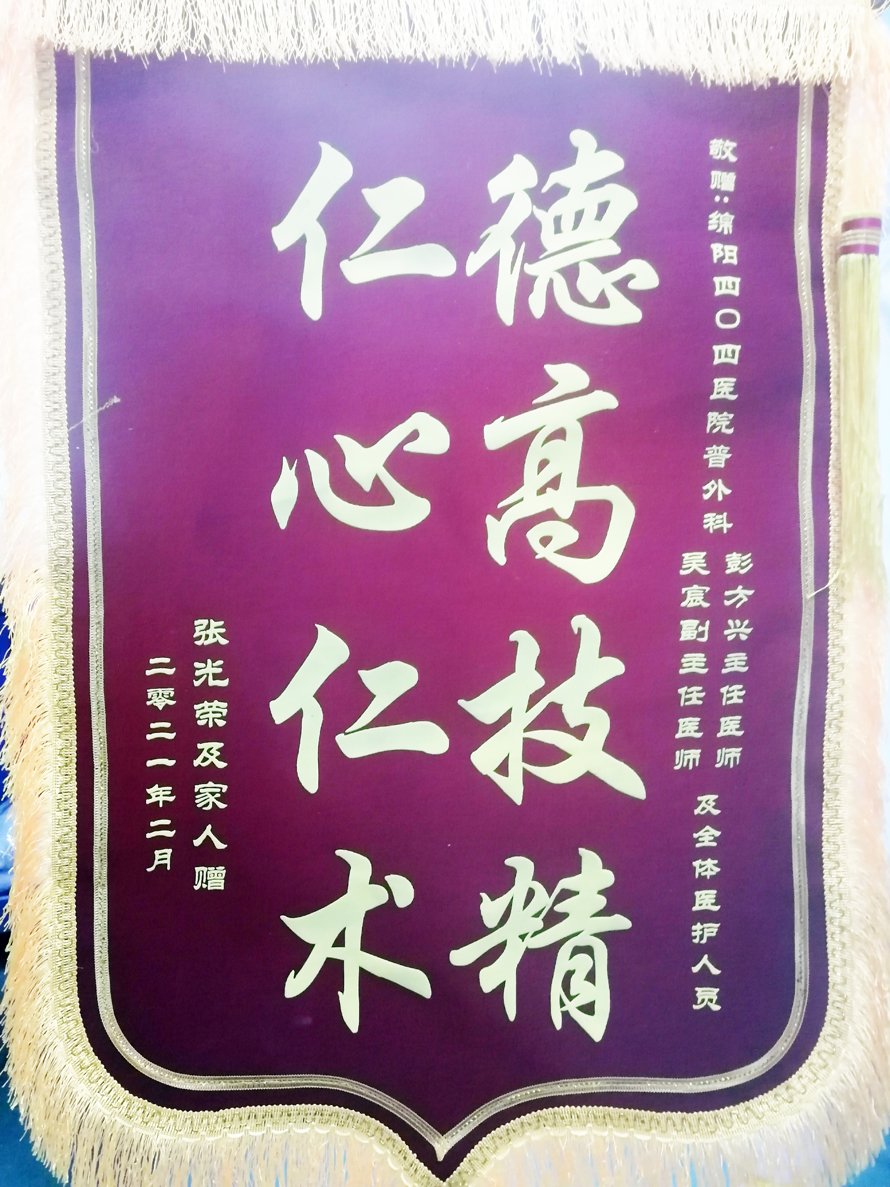 敬赠:绵阳四〇四医院普外科
彭方兴主任医师
吴宸副主任医师
及全体医护人员
德高技精
仁心仁术
张光荣及家人赠
二零二一年二月